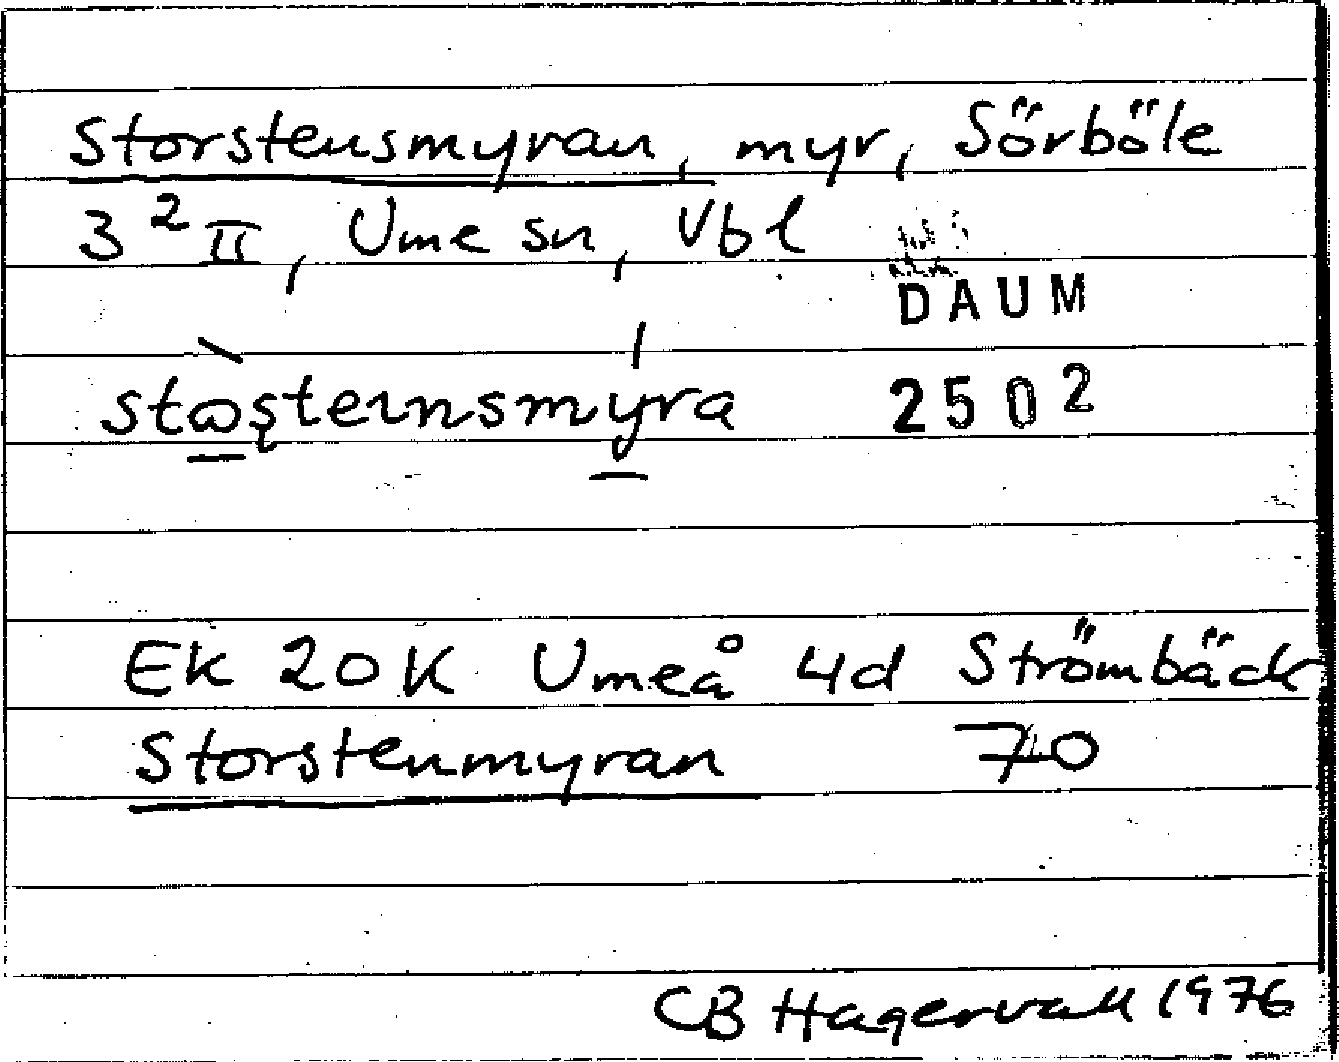 Storstensmyran, myr, Sörböle
3² II, Ume sn, Vbl
DAUM
2502
stɷs̨teɩnsmyra
Ek 20K Umeå 4d Strömbäck
Storstenmyran 70
CB Hagervall 1976